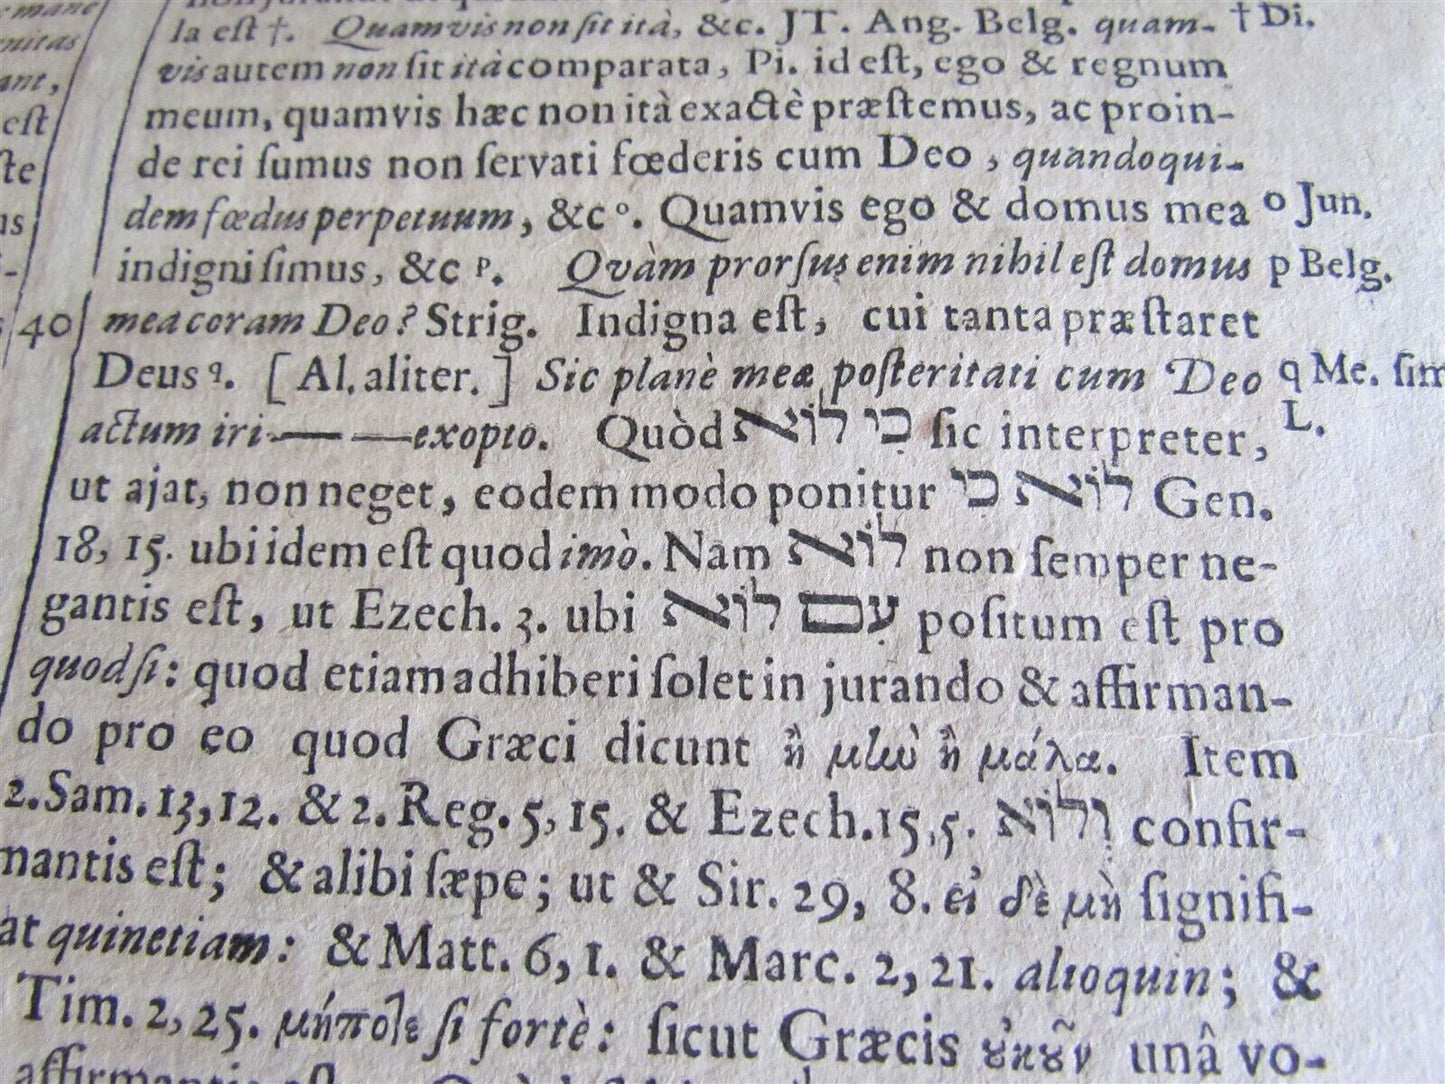 mane
nitas
ant,
est
ste
us
la eſt †. Quamvis non ſit ità, &c. JT. Ang. Belg. quam- † Di.
vis autem non ſit ità comparata, Pi. id eſt, ego & regnum
meum, quamvis hæc non ità exactè præſtemus, ac proin-
de rei ſumus non ſervati fœderis cum Deo, quandoqui-
dem fœdus perpetuum, &c o. Quamvis ego & domus mea o Jun.
indigni ſimus, &c p. Quàm prorſus enim nihil eſt domus p Belg.
40 mea coram Deo? Strig. Indigna eſt, cui tanta præſtaret
Deus q. [Al. aliter.] Sic planè meæ poſteritati cum Deo q Me. ſim
actum iri — — exopto. Quòd כִי לוֹא ſic interpreter, L.
ut ajat, non neget, eodem modo ponitur לוֹא כִי Gen.
18, 15. ubi idem eſt quod imò. Nam לוֹא non ſemper ne-
gantis eſt, ut Ezech. 3. ubi עִם לוֹא poſitum eſt pro
quodſi: quod etiam adhiberi ſolet in jurando & affirman-
do pro eo quod Græci dicunt ἢ μὴν ἢ μάλα. Item
2. Sam. 13, 12. & 2. Reg. 5, 15. & Ezech. 15, 5. וְלוֹא confir-
mantis eſt; & alibi ſæpe; ut & Sir. 29, 8. εἰ δὲ μὴ ſignifi-
at quinetiam: & Matt. 6, 1. & Marc. 2, 21. alioquin; &
Tim. 2, 25. μήποτε ſi fortè: ſicut Græcis οὐκοῦν unâ vo-
affirmantis eſt.